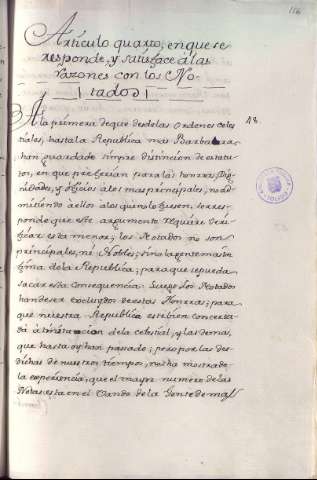 116
Artículo quarto, en que se
responde, y satisface à las
razones con los No-
tados
A la primera de que desde las Ordenes celes
tiales, hasta la Republica mas Barbara
han guardado simpre distincion de estatu-
tos, en que prefieran para las honras, Dig
nidades, y oficios a los mas principales, no ad
mitiendo à ellos à los que no lo fuesen, se res-
ponde que este argumento requiere veri-
ficar esta menor; los Notados no son
principales, ni Nobles, sino la gente mas in
fima de la Republica, para que se pueda
sacar esta Consequencia: Luego los Notados
han de ser excluydos de estas Honras; para
que nuestra Republica este bien concerta
da à imitacion de la celestial, y las demas,
que hasta oy han pasado; pero por las des-
dichas de nuestros tiempos, nos ha mostrado
la experiencia, que el mayor numero de las
Notas esta en el Vando de la Gente de mas
18.